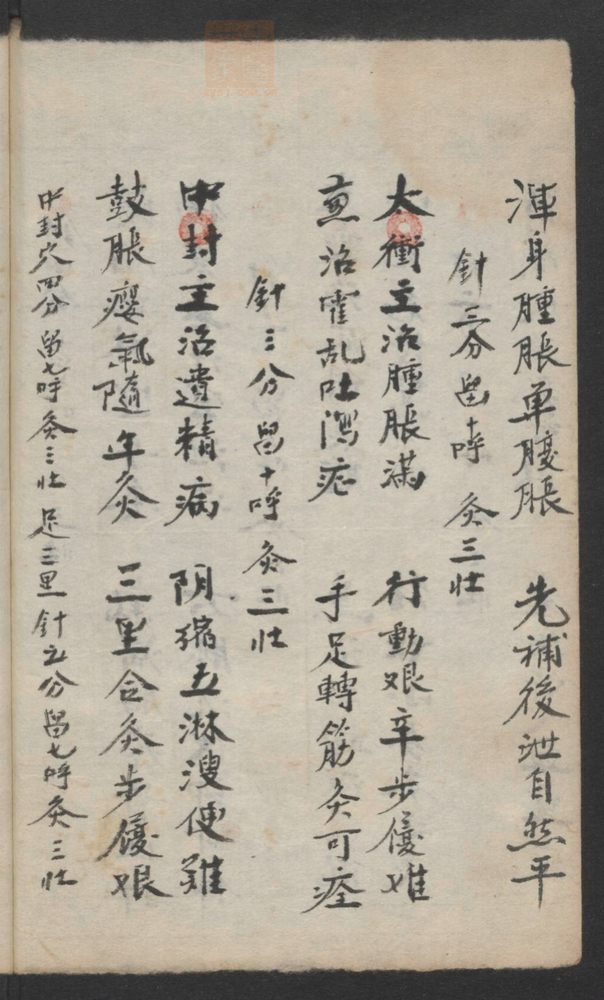 渾身腫脹单腹脹　先補後泄自然平
針三分留十呼　灸三壮
太衝主治腫脹滿　行動艰辛步履难
兼治霍乱吐瀉症　手足轉筋灸可痊
針三分留十呼灸三壮
中封主治遺精病　阴缩五淋溲便難
鼓脹癭氣隨年灸　三里合灸步履艰
中封穴四分留七呼灸三壮足三里針五分留七呼灸三壮